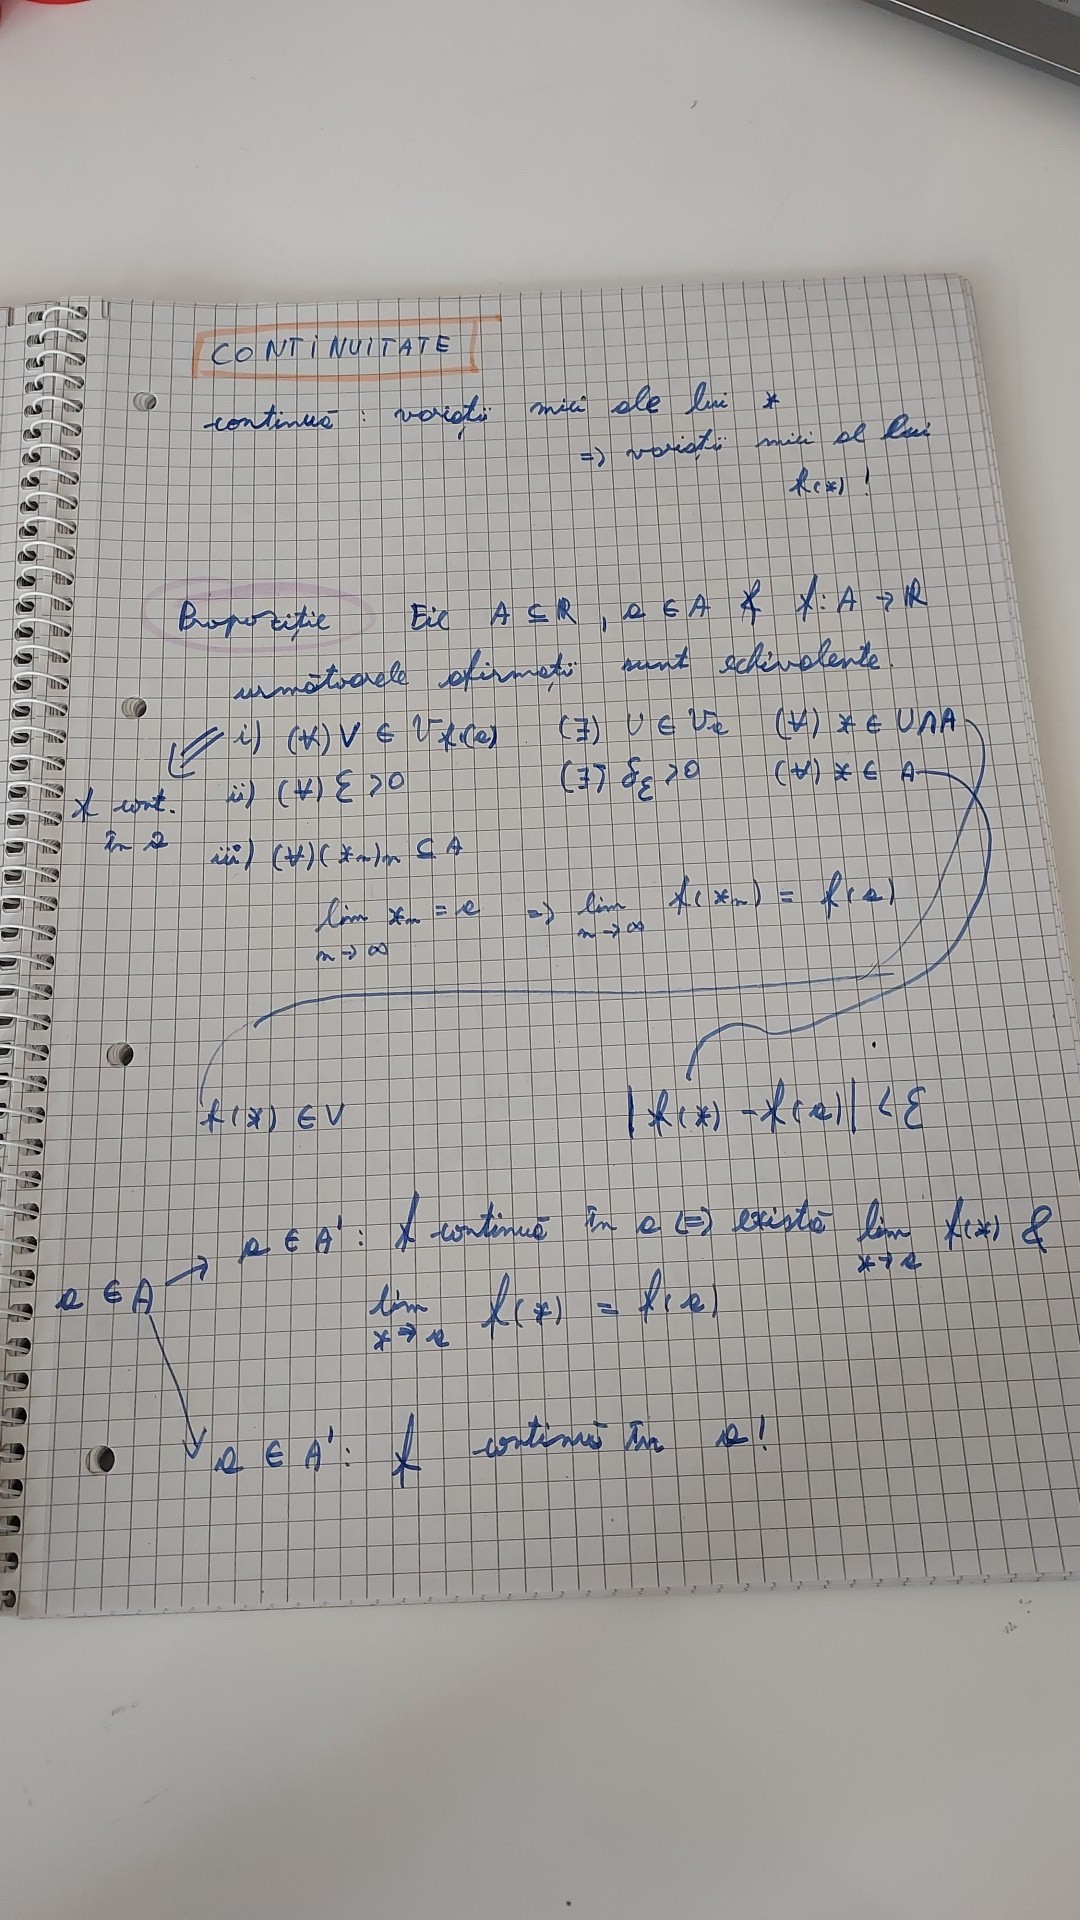 CONTINUITATE
continuă : variații mici ale lui x
=> variații mici al lui
f(x) !
Propoziție Fie A ⊆ ℝ, a ∈ A & f: A → ℝ
următoarele afirmații sunt echivalente.
i) (∀) V ∈ V_f(a) (∃) U ∈ V_a (∀) x ∈ U∩A
ii) (∀) ε > 0 (∃) δ_ε > 0 (∀) x ∈ A
f cont.
în a
iii) (∀) (x_n)_n ⊆ A
lim x_n = a => lim f(x_n) = f(a)
n→∞ n→∞
f(x) ∈ V |f(x) - f(a)| < ε
a ∈ A' : f continuă în a (=) există lim f(x) &
x→a
a ∈ A
lim f(x) = f(a)
x→a
a ∈ A' : f continuă în a!